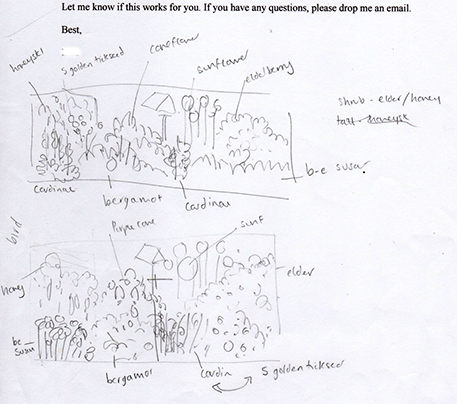 Let me know if this works for you. If you have any questions, please drop me an email.
Best,
honeyskl
S golden tickseed
coneflower
sunflower
elderberry
shrub - elder/honey
tall - honeysk
b-e susan
cardinal
bergamot
cardinal
bird
Purple cone
sunf
honey
elder
be
Susan
bergamot
cardin
S golden tickseed